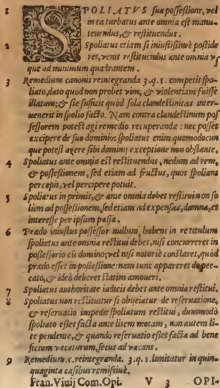 1 SPOLIATVS sua possessione, vel
in ea turbatus ante omnia est manu-
tenendus, & restituendus.
2 Spoliatus etiam si iniustissimè posside
ret, venit restituendus ante omnia vs
que ad maximum quatrantem.
3 Remedium canonis reintegranda 3.q.1. competit spo-
liato, dato quòd non probet vim, & violentiam fuisse
illatam; & sic sufficit quòd sola clandestinitas inter-
uenerit in spolio facto. Nam contra clandestinum pos
sessorem potest agi remedio recuperandæ: nec posset
excipere de suo dominio: spoliatus enim quomodocun
que potest agere sibi dominij exceptione non obstante.
4 Spoliatus ante omnia est restituendus, nedum ad rem,
& possessionem, sed etiam ad fructus, quos spolians
percepit, vel percipere potuit.
5 Spoliatus in primis, & ante omnia debet restitui non so
lum ad possessionem, sed etiam ad expensas, damna, &
interesse per ipsum passa.
6 Prædo iniustus possessor nullum habens in re titulum
spoliatus ante omnia restitui debet, nisi concurreret in
possessorio eius dominio; vel nisi notoriè constaret, quòd
prædo esset in possessione: nam tunc appareret de pec-
cato, & ideò deberet statim amoueri.
7 Spoliatus authoritate iudicis debet ante omnia restitui.
8 Spoliatus non restituitur si obijciatur de reseruatione,
& reseruatio impedit spoliatum restitui, dummodò
spoliatio esset facta ante litem motam, non autem li-
te pendente, & quando reseruatio esset facta ad bene
ficium vacaturum, secus ad vacans.
9 Remedium c. reintegranda. 3.q.1. limitatur in quin-
quaginta casibus remissiuè.
Fran. Viuij Com. Opi. V 3 OPI-